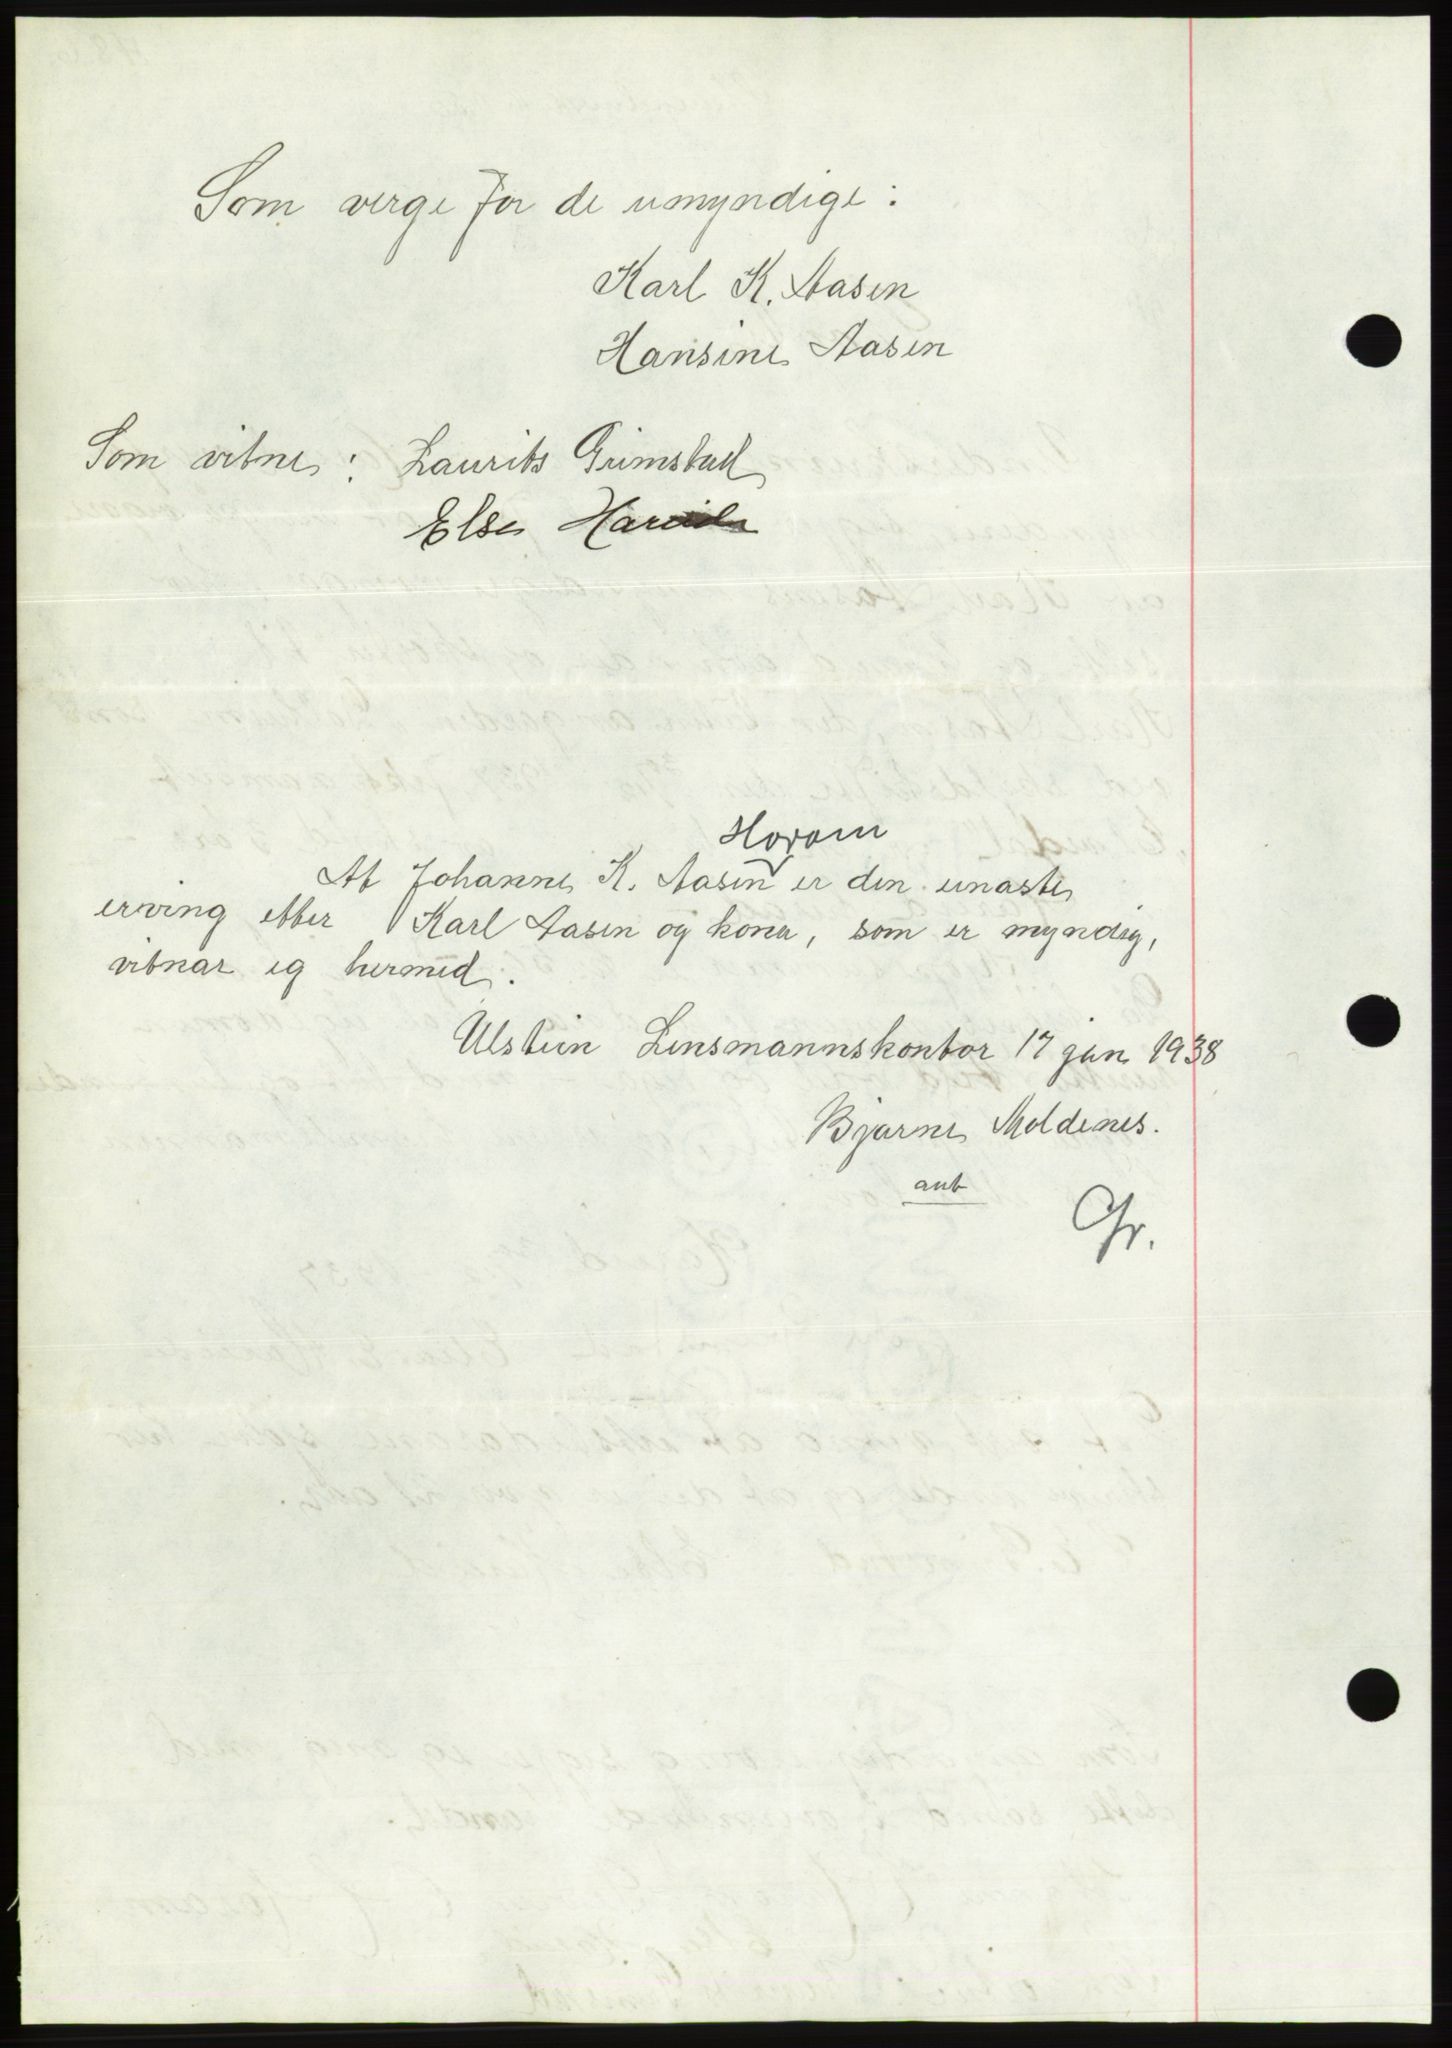 Som verge for de umyndige:
Karl K. Aasen
Hansine Aasen
Som vitne: Laurits Grimstad
Else Hareide
Horom
At Johanne K. Aasen er den einaste
erving etter Karl Aasen og kona, som er myndig,
vitnar eg hermed.
Ulstein Lensmannskontor 17 jan 1938
Bjarne Moldenes.
aut
Gr.